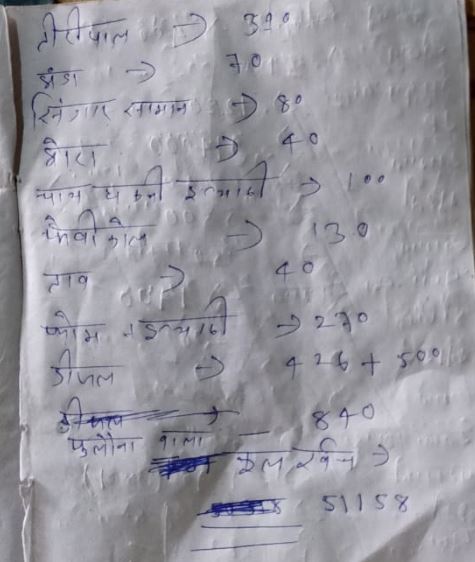 तीरीपाल → 390
झंडा → 70
सिंगार सामान → 80
बोरा → 40
चाय इत्यादी → 100
फेवीकोल → 130
ताव → 40
इत्यादी → 270
डीजल → 426 + 500
840
फुलौना वाला —
कुल खर्च →
51158